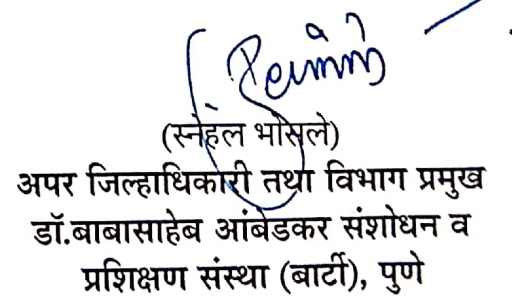 (स्नेहल भोसले)
अपर जिल्हाधिकारी तथा विभाग प्रमुख
डॉ.बाबासाहेब आंबेडकर संशोधन व
प्रशिक्षण संस्था (बार्टी), पुणे